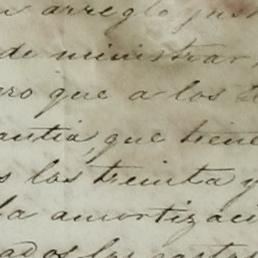 arreglo
de ministrar
ro que a los
antia, que tiene
s las treinta y
la amortizaci
ados los gastos